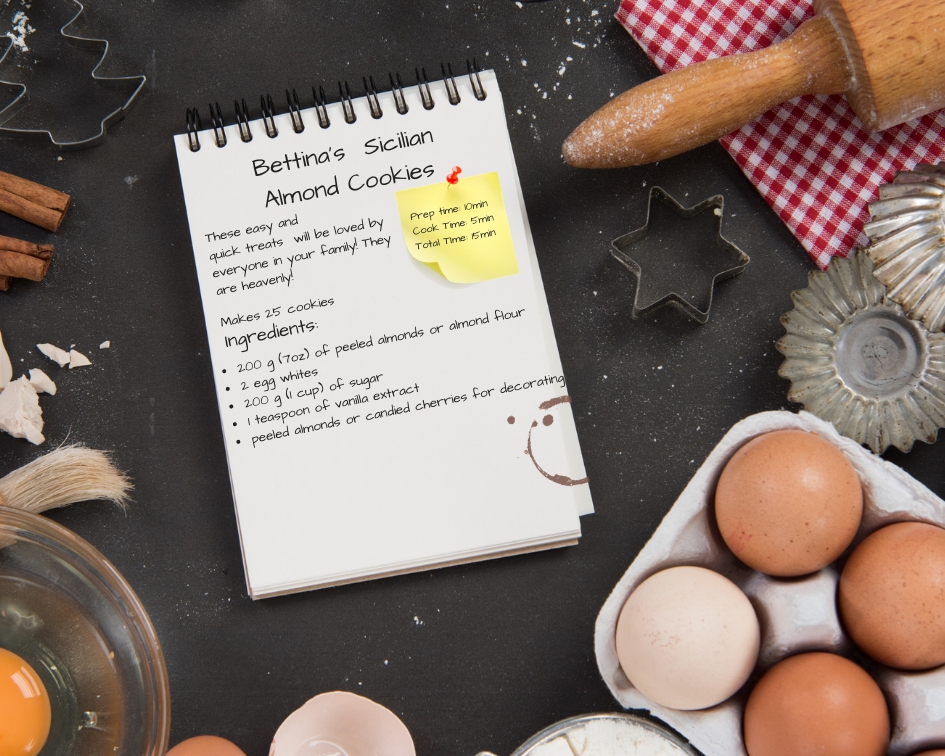 Bettina's Sicilian
Almond Cookies
These easy and
quick treats will be loved by
everyone in your family! They
are heavenly!
Prep time: 10min
Cook Time: 5min
Total Time: 15min
Makes 25 cookies
Ingredients:
• 200 g (7oz) of peeled almonds or almond flour
• 2 egg whites
• 200 g (1 cup) of sugar
• 1 teaspoon of vanilla extract
• peeled almonds or candied cherries for decorating